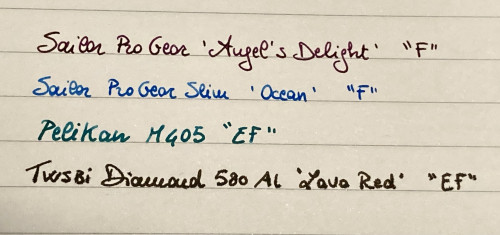 Sailor Pro Gear 'Angel's Delight' "F"
Sailor Pro Gear Slim 'Ocean' "F"
Pelikan M405 "EF"
TWSBI Diamond 580 AL 'Lava Red' "EF"